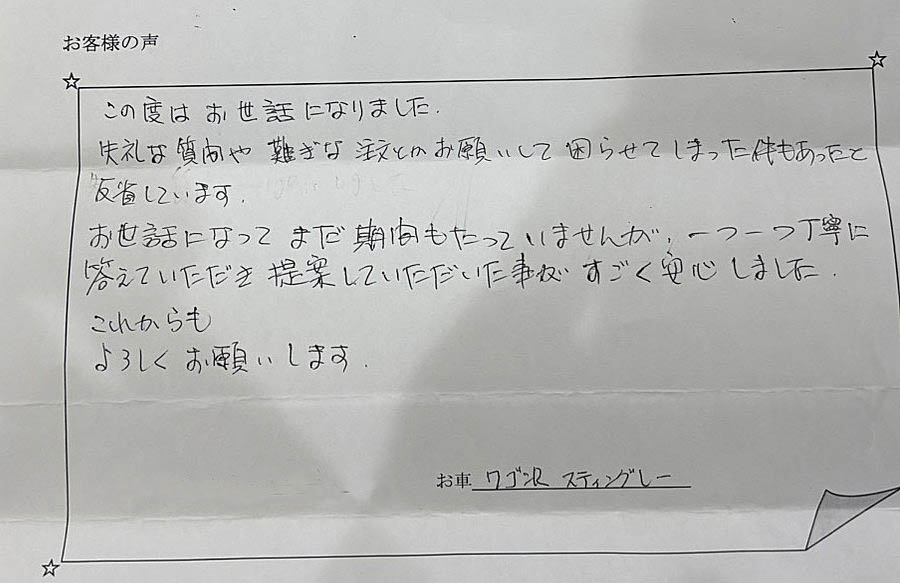 お客様の声
この度はお世話になりました.
失礼な質問や難ぎな注文とかお願いして困らせてしまった件もあったと
反省しています.
お世話になってまだ期間もたっていませんが、一つ一つ丁寧に
答えていただき提案していただいた事がすごく安心しました.
これからも
よろしくお願いします.
お車 ワゴンR スティングレー